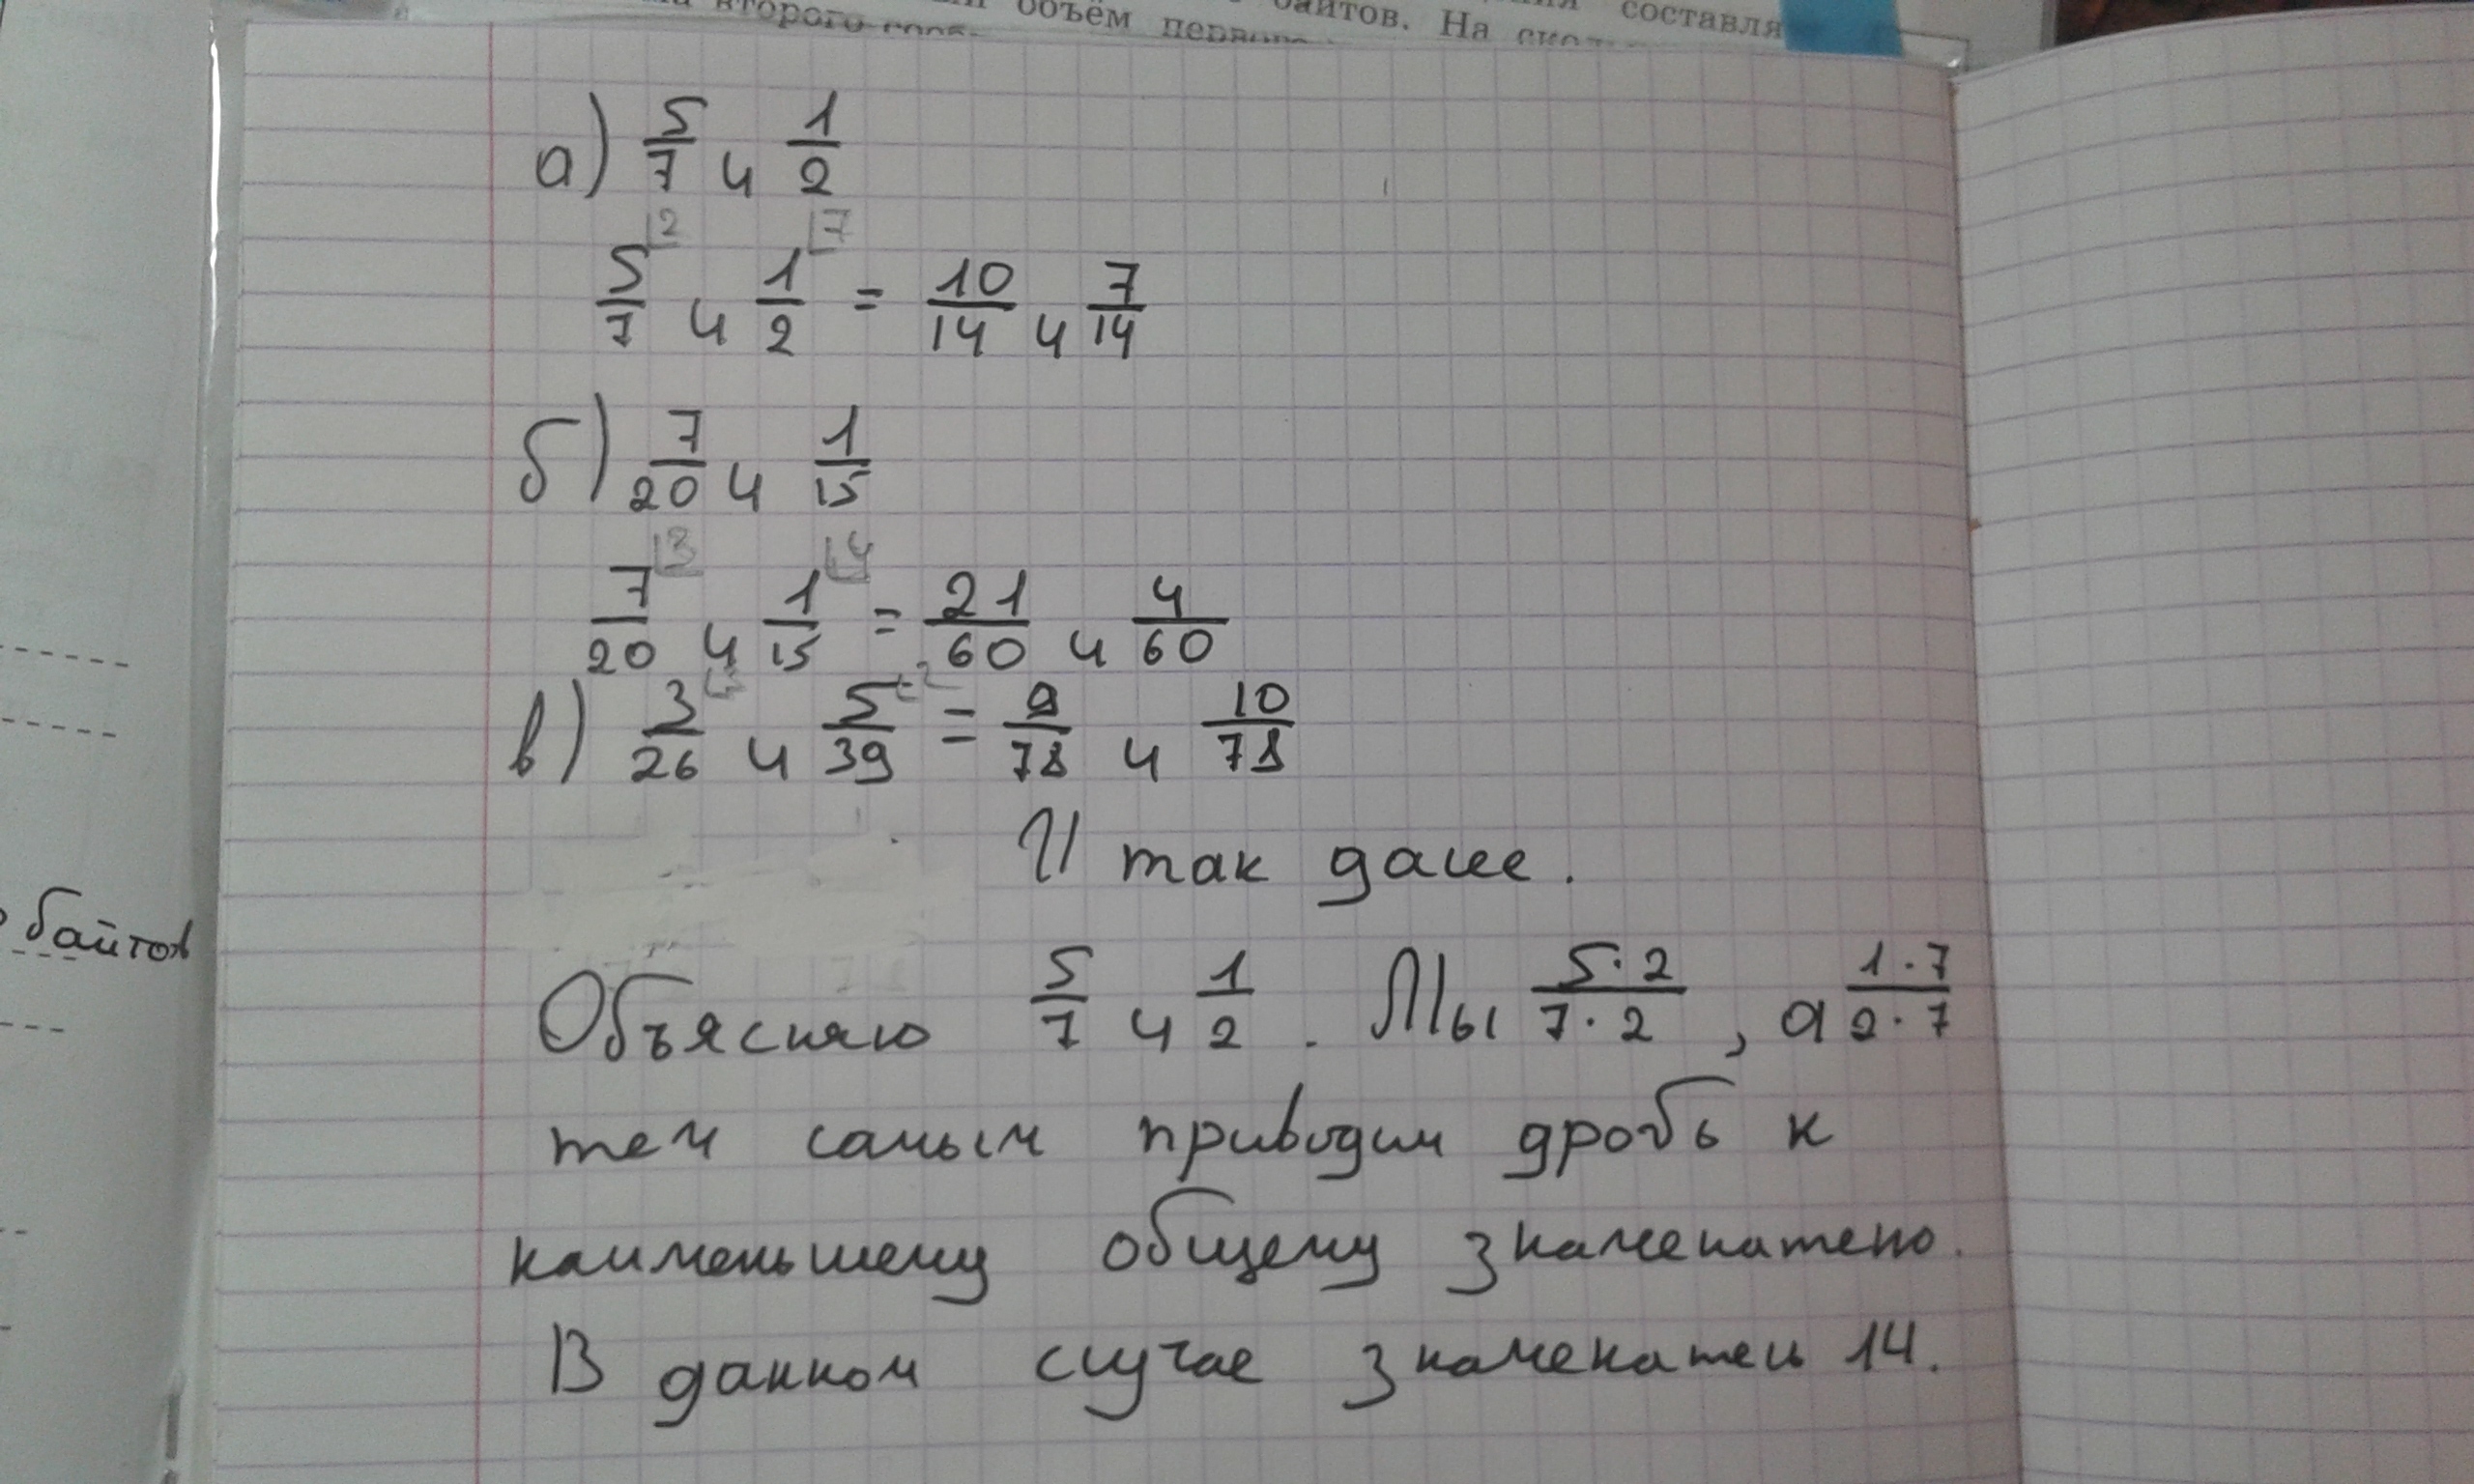 объём первого
байтов. На
составля
второго
а) 5/7 и 1/2
5/7 |2 и 1/2 |7 = 10/14 и 7/14
б) 7/20 и 1/15
7/20 |3 и 1/15 |4 = 21/60 и 4/60
в) 3/26 и 5/39 = 9/78 и 10/78
И так далее.
байтов
Объясняю 5/7 и 1/2. Мы 5·2/7·2, а 1·7/2·7
тем самым приводим дробь к
наименьшему общему знаменателю.
В данном случае знаменатель 14.